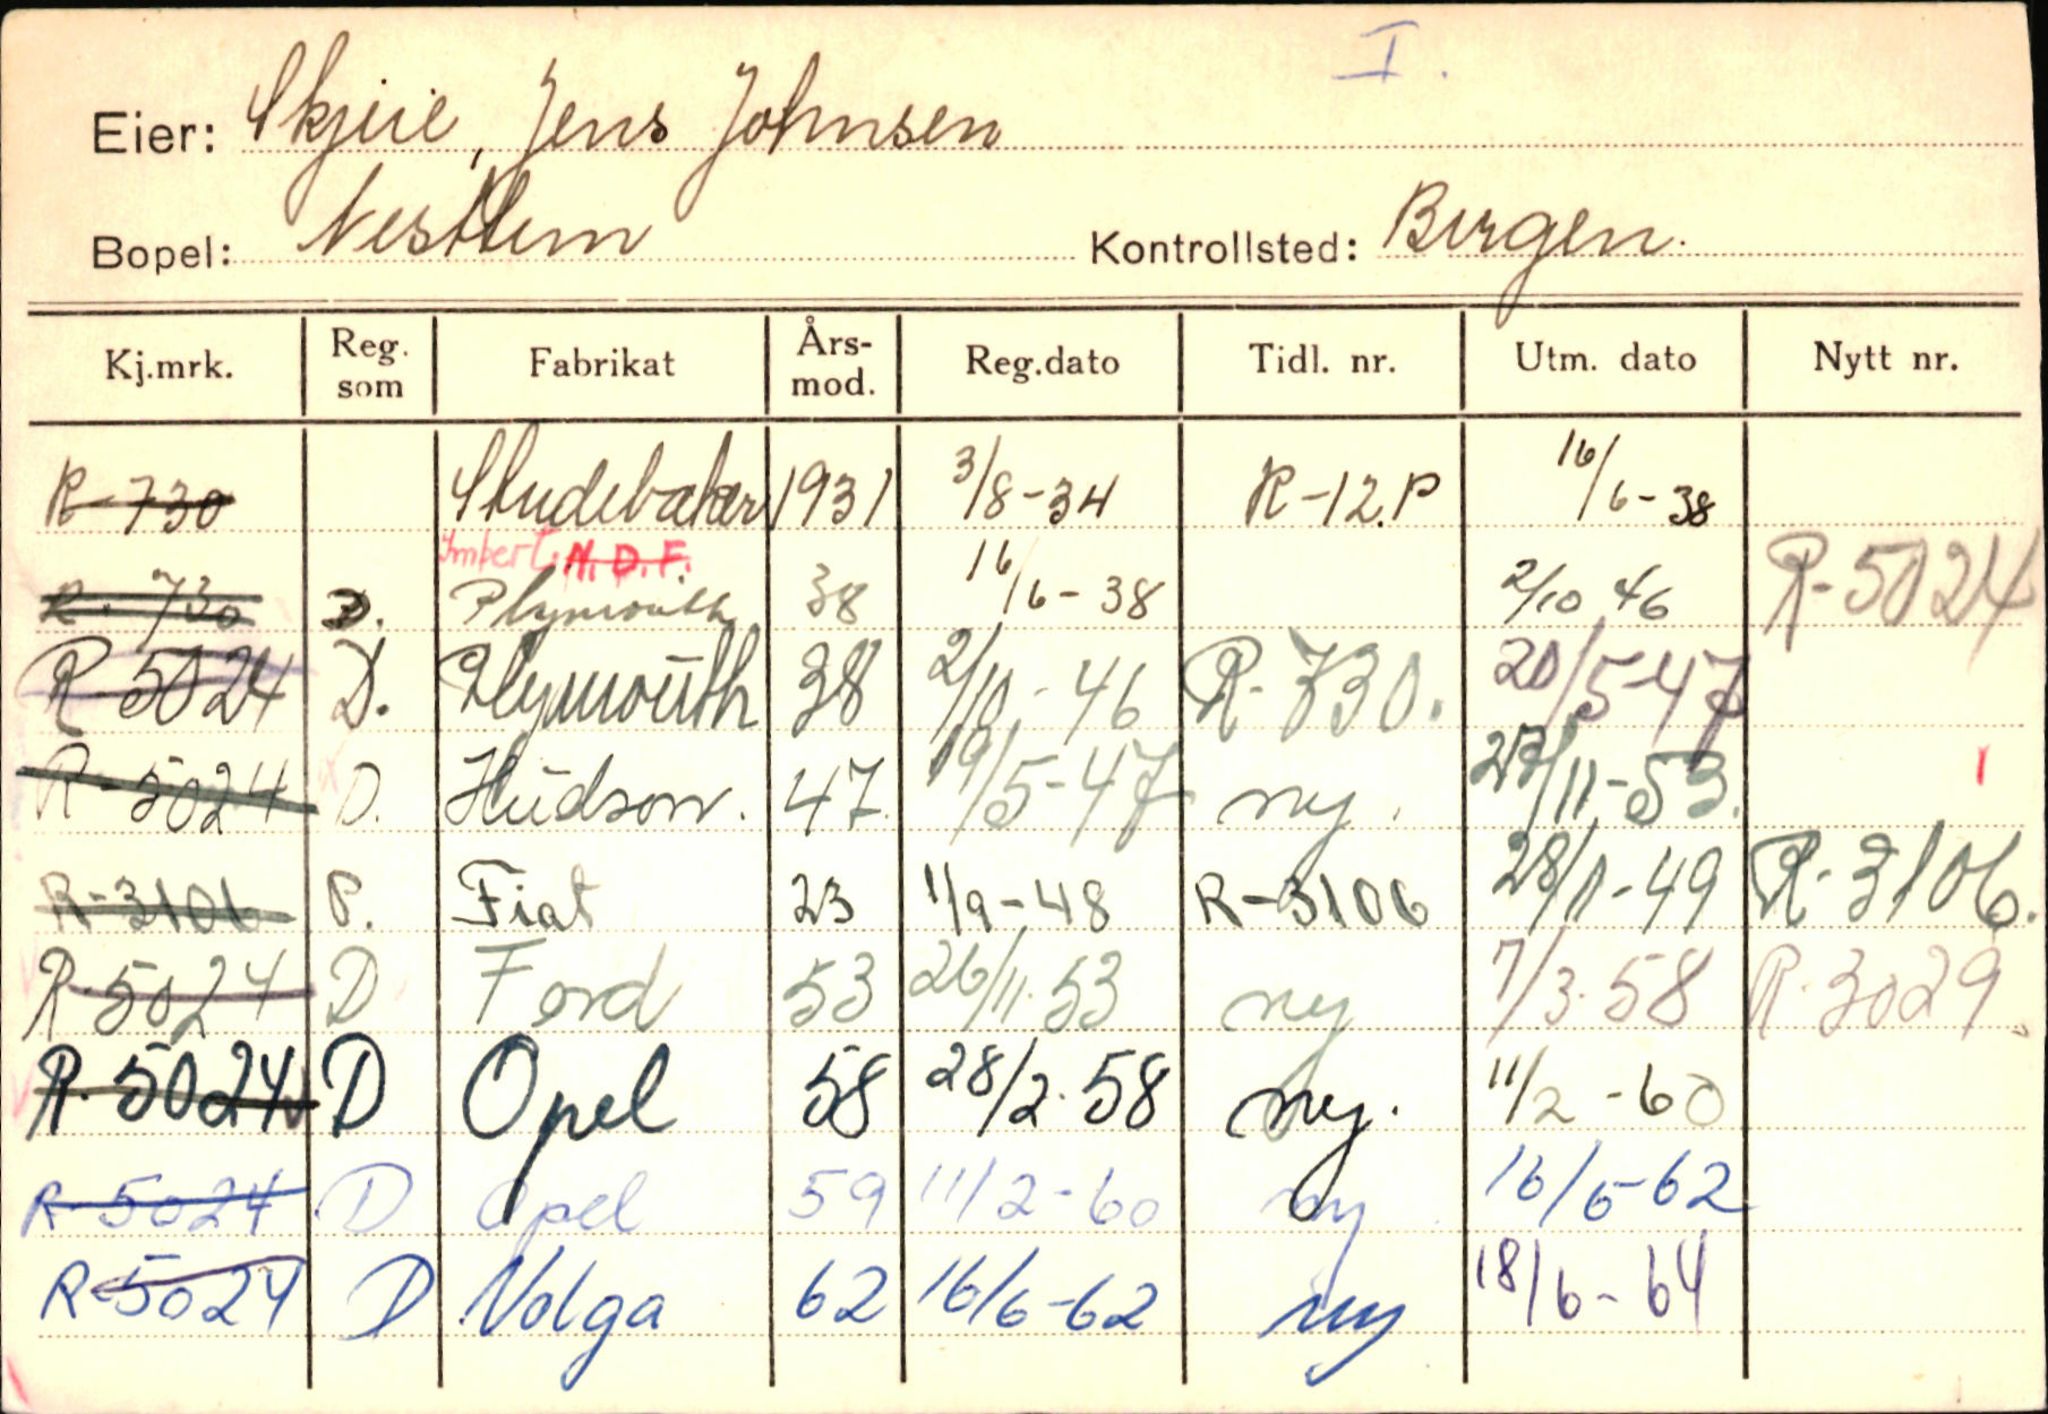 I.
Eier: Skjeie, Jens Johnsen
Bopel: Nesttun Kontrollsted: Bergen.
Kj.mrk. Reg. som Fabrikat Års-mod. Reg.dato Tidl. nr. Utm. dato Nytt nr.
R-730 Studebaker 1931 3/8-34 R-12.P 16/6-38
Imbert. N.D.F.
R-730 D. Plymouth 38 16/6-38 2/10 46 R-5024
R-5024 D. Plymouth 38 2/10-46 R-730. 20/5-47
R-5024 D. Hudson. 47. 19/5-47 ny. 27/11-53.
R-3106 P. Fiat 23 1/9-48 R-3106 28/1-49 R-3106.
R-5024 D Ford 53 26/11.53 ny 7/3.58 R-3029.
R-5024 D Opel 58 28/2.58 ny. 11/2-60
R-5024 D Opel 59 11/2-60 ny 16/6-62
R-5024 D Volga 62 16/6-62 ny 18/6-64